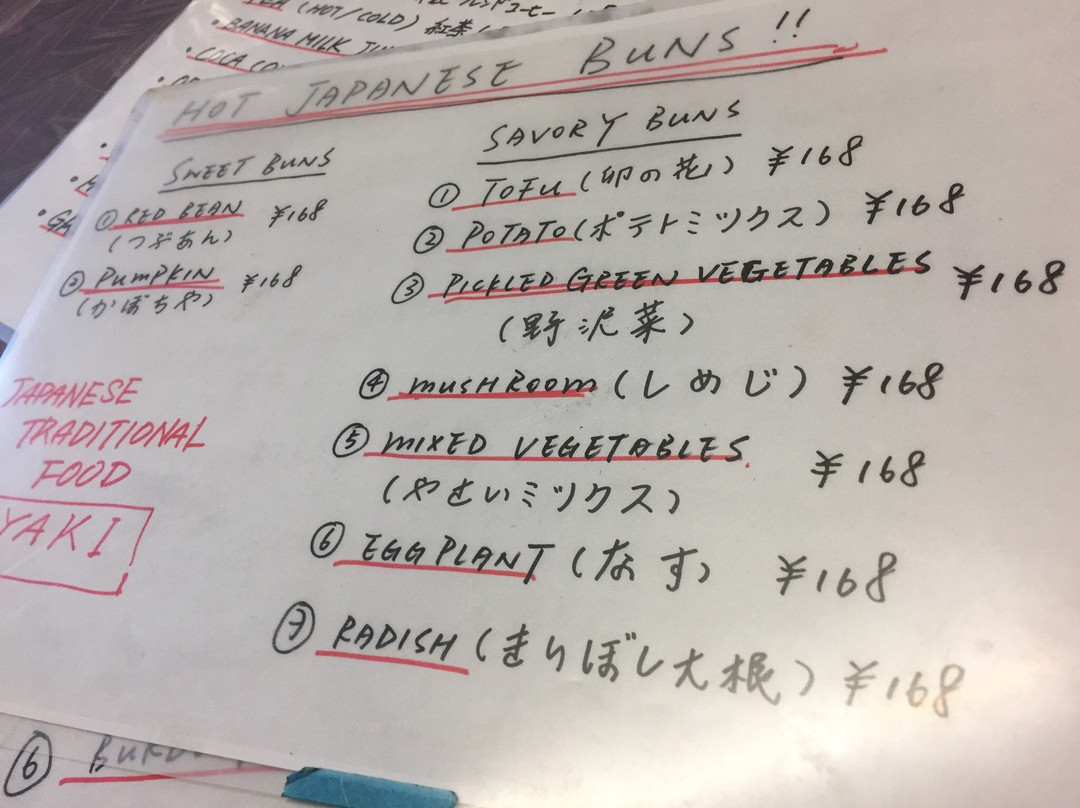 (HOT/COLD) 紅茶
• BANANA MILK
• COCA
HOT JAPANESE BUNS!!
SWEET BUNS
① RED BEAN ¥168
(つぶあん)
② PUMPKIN ¥168
(かぼちゃ)
JAPANESE
TRADITIONAL
FOOD
YAKI
SAVORY BUNS
① TOFU (卯の花) ¥168
② POTATO (ポテトミックス) ¥168
③ PICKLED GREEN VEGETABLES ¥168
(野沢菜)
④ MUSHROOM (しめじ) ¥168
⑤ MIXED VEGETABLES ¥168
(やさいミックス)
⑥ EGGPLANT (なす) ¥168
⑦ RADISH (きりぼし大根) ¥168
⑥